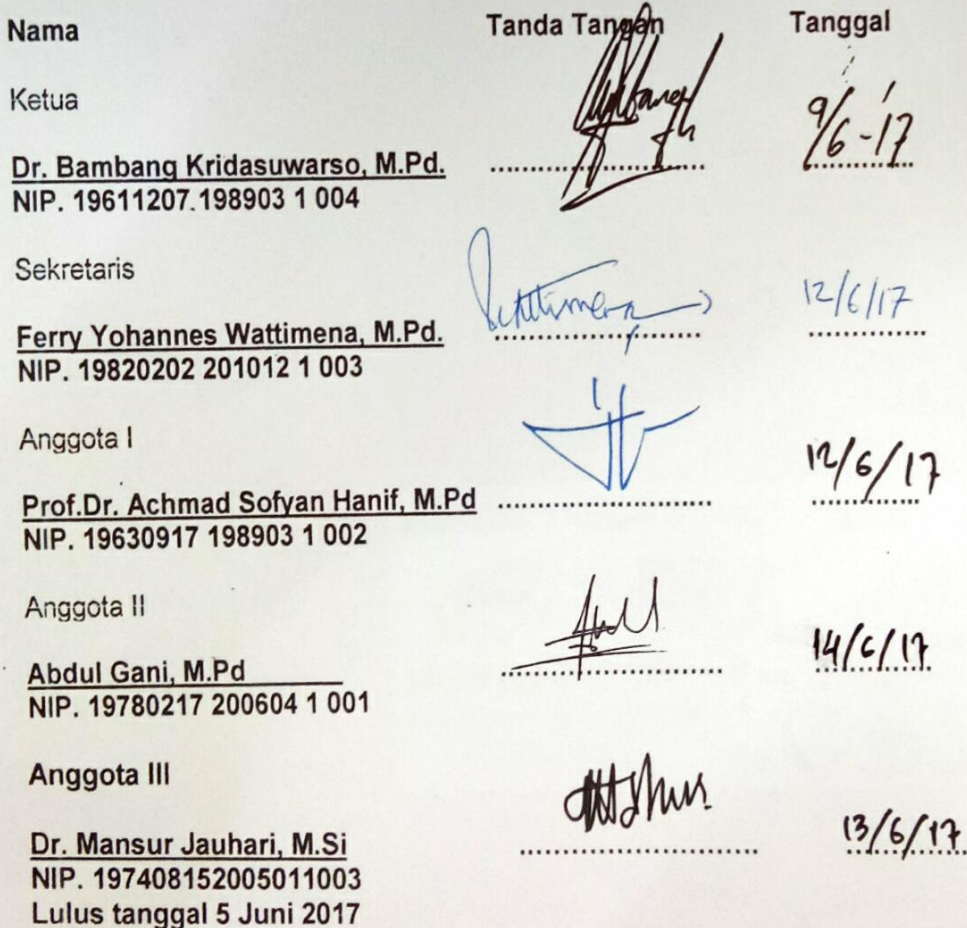 Nama Tanda Tangan Tanggal
Ketua
9/6-'17
Dr. Bambang Kridasuwarso, M.Pd. ..............................
NIP. 19611207.198903 1 004
Sekretaris
Wattimena 12/6/17
Ferry Yohannes Wattimena, M.Pd. ..............................
NIP. 19820202 201012 1 003
Anggota I
12/6/17
Prof.Dr. Achmad Sofyan Hanif, M.Pd ..............................
NIP. 19630917 198903 1 002
Anggota II
14/6/17
Abdul Gani, M.Pd ..............................
NIP. 19780217 200604 1 001
Anggota III
13/6/17
Dr. Mansur Jauhari, M.Si ..............................
NIP. 197408152005011003
Lulus tanggal 5 Juni 2017